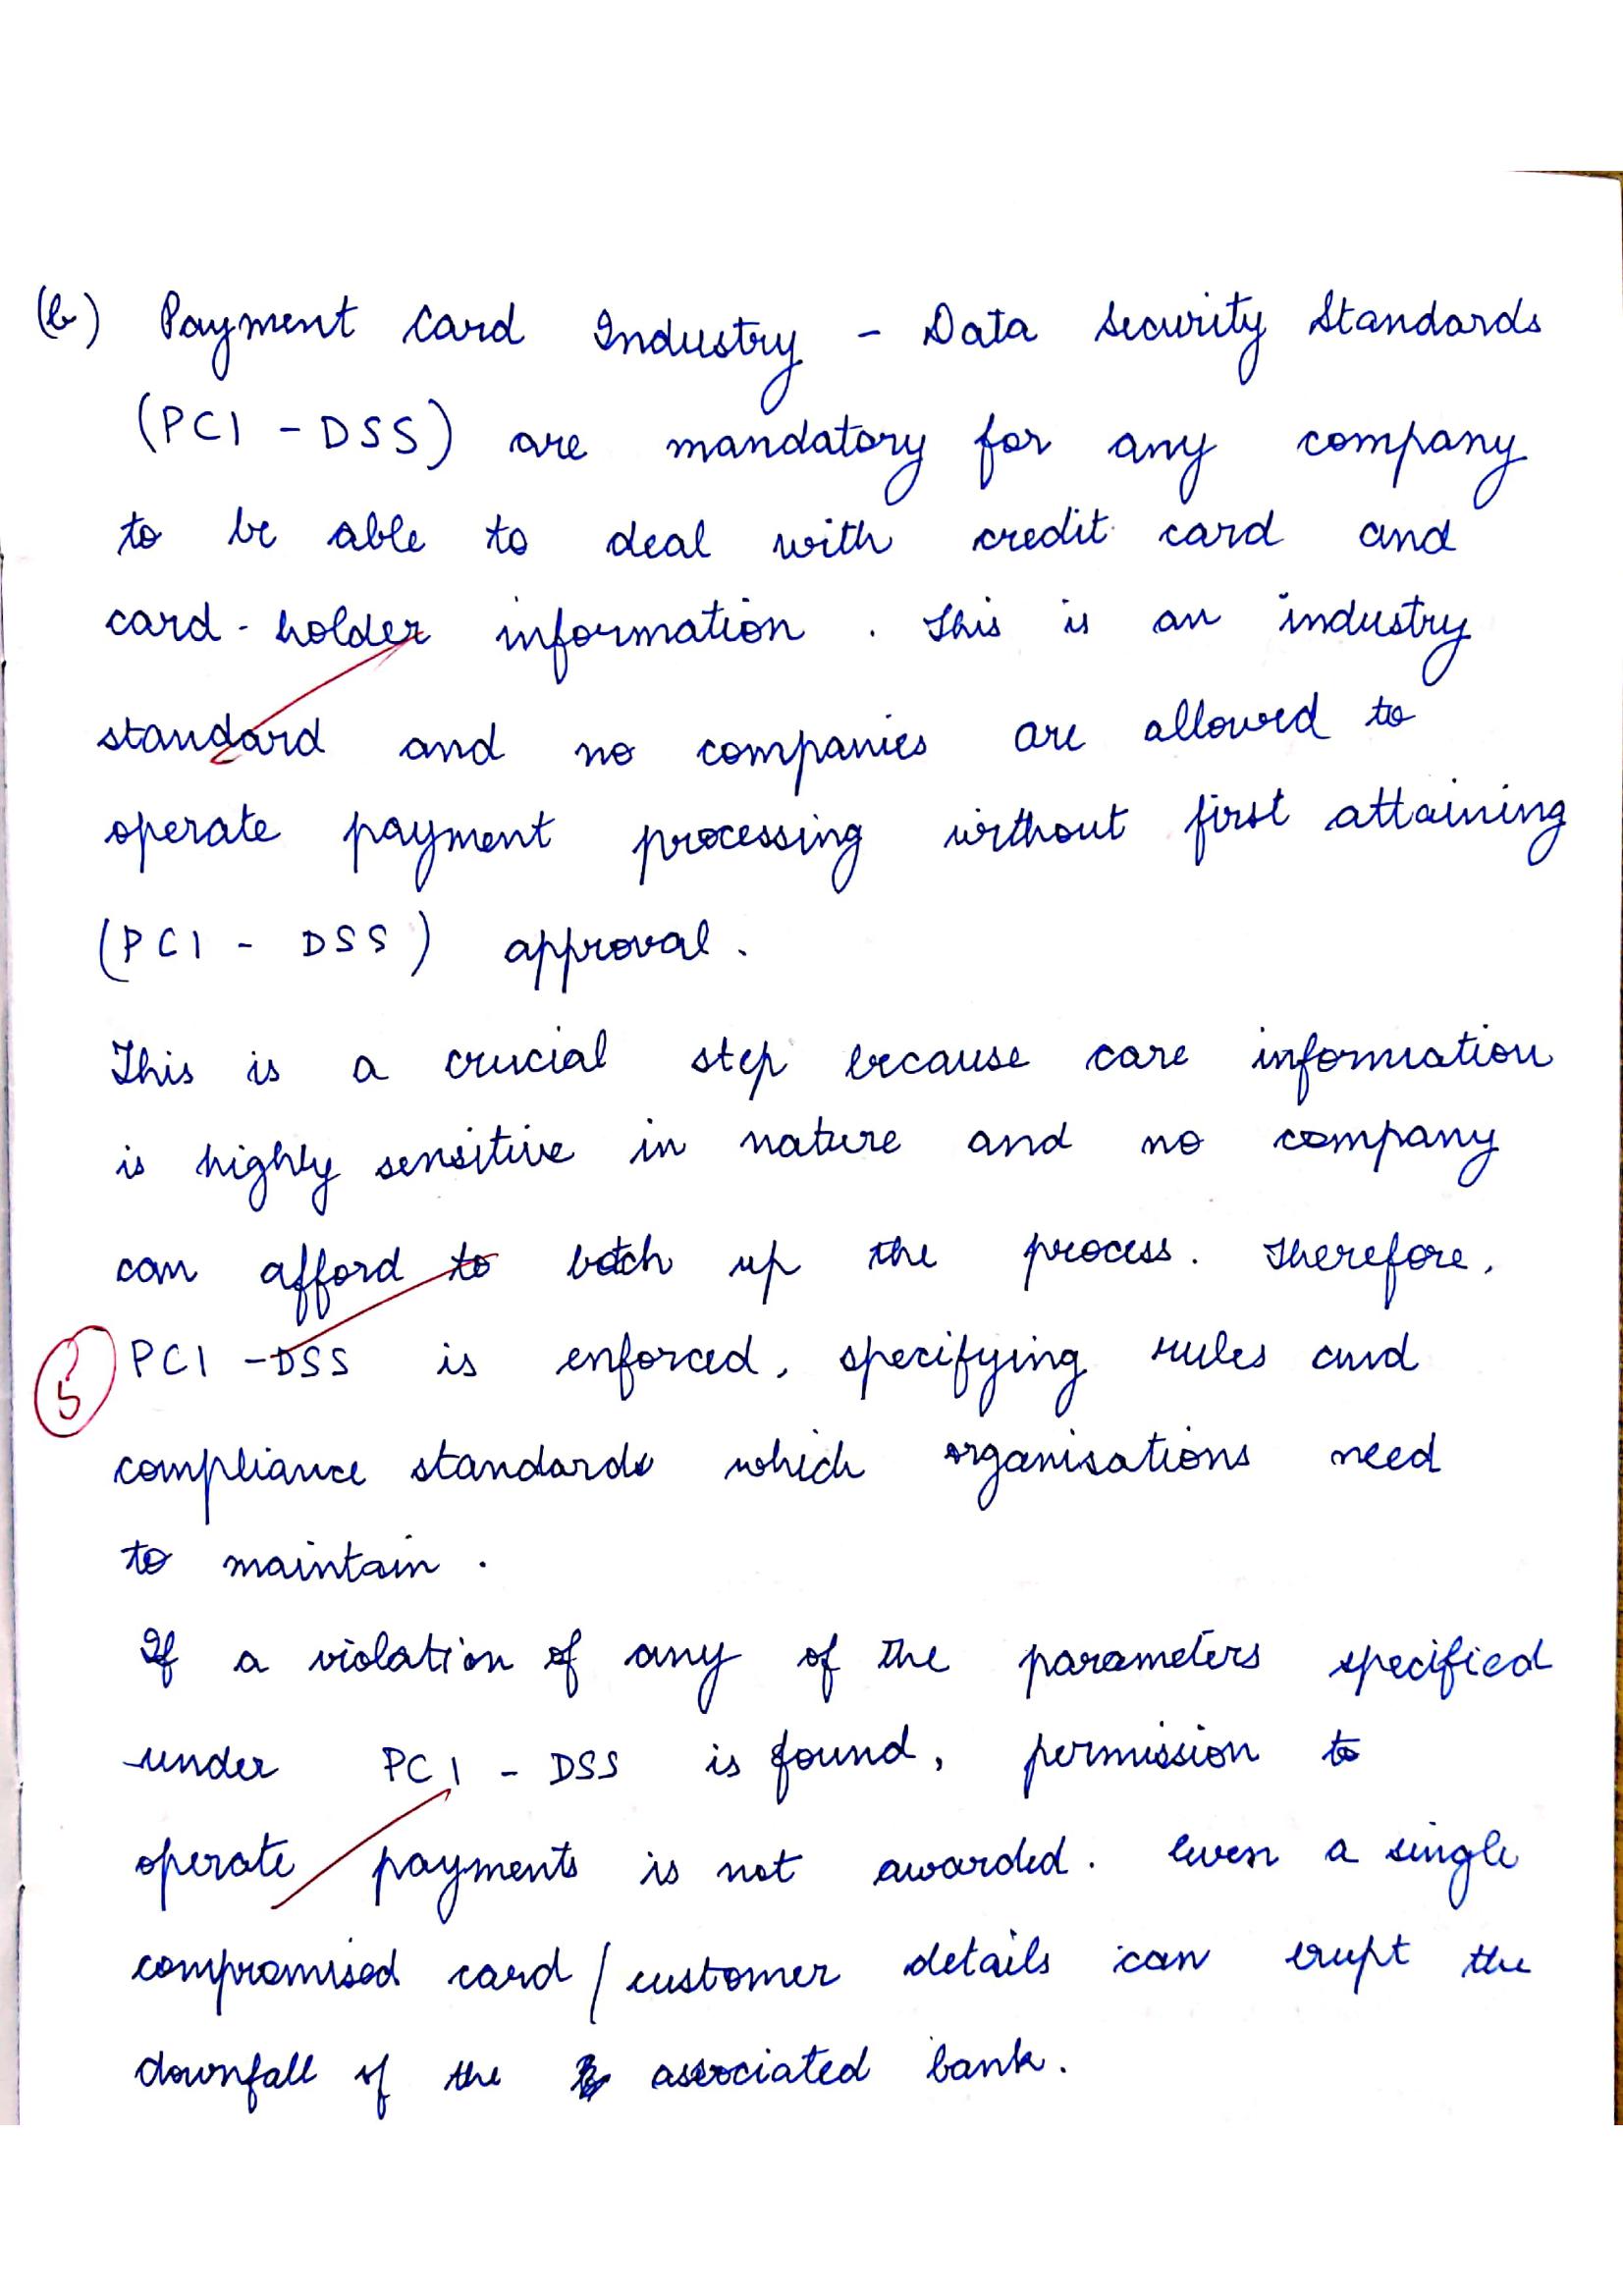 (b) Payment Card Industry - Data Security Standards
(PCI - DSS) are mandatory for any company
to be able to deal with credit card and
card-holder information. This is an industry
standard and no companies are allowed to
operate payment processing without first attaining
(PCI - DSS) approval.
This is a crucial step because care information
is highly sensitive in nature and no company
can afford to botch up the process. Therefore,
PCI - DSS is enforced, specifying rules and
5
compliance standards which organisations need
to maintain.
If a violation of any of the parameters specified
under PCI - DSS is found, permission to
operate payments is not awarded. Even a single
compromised card / customer details can erupt the
downfall of the associated bank.